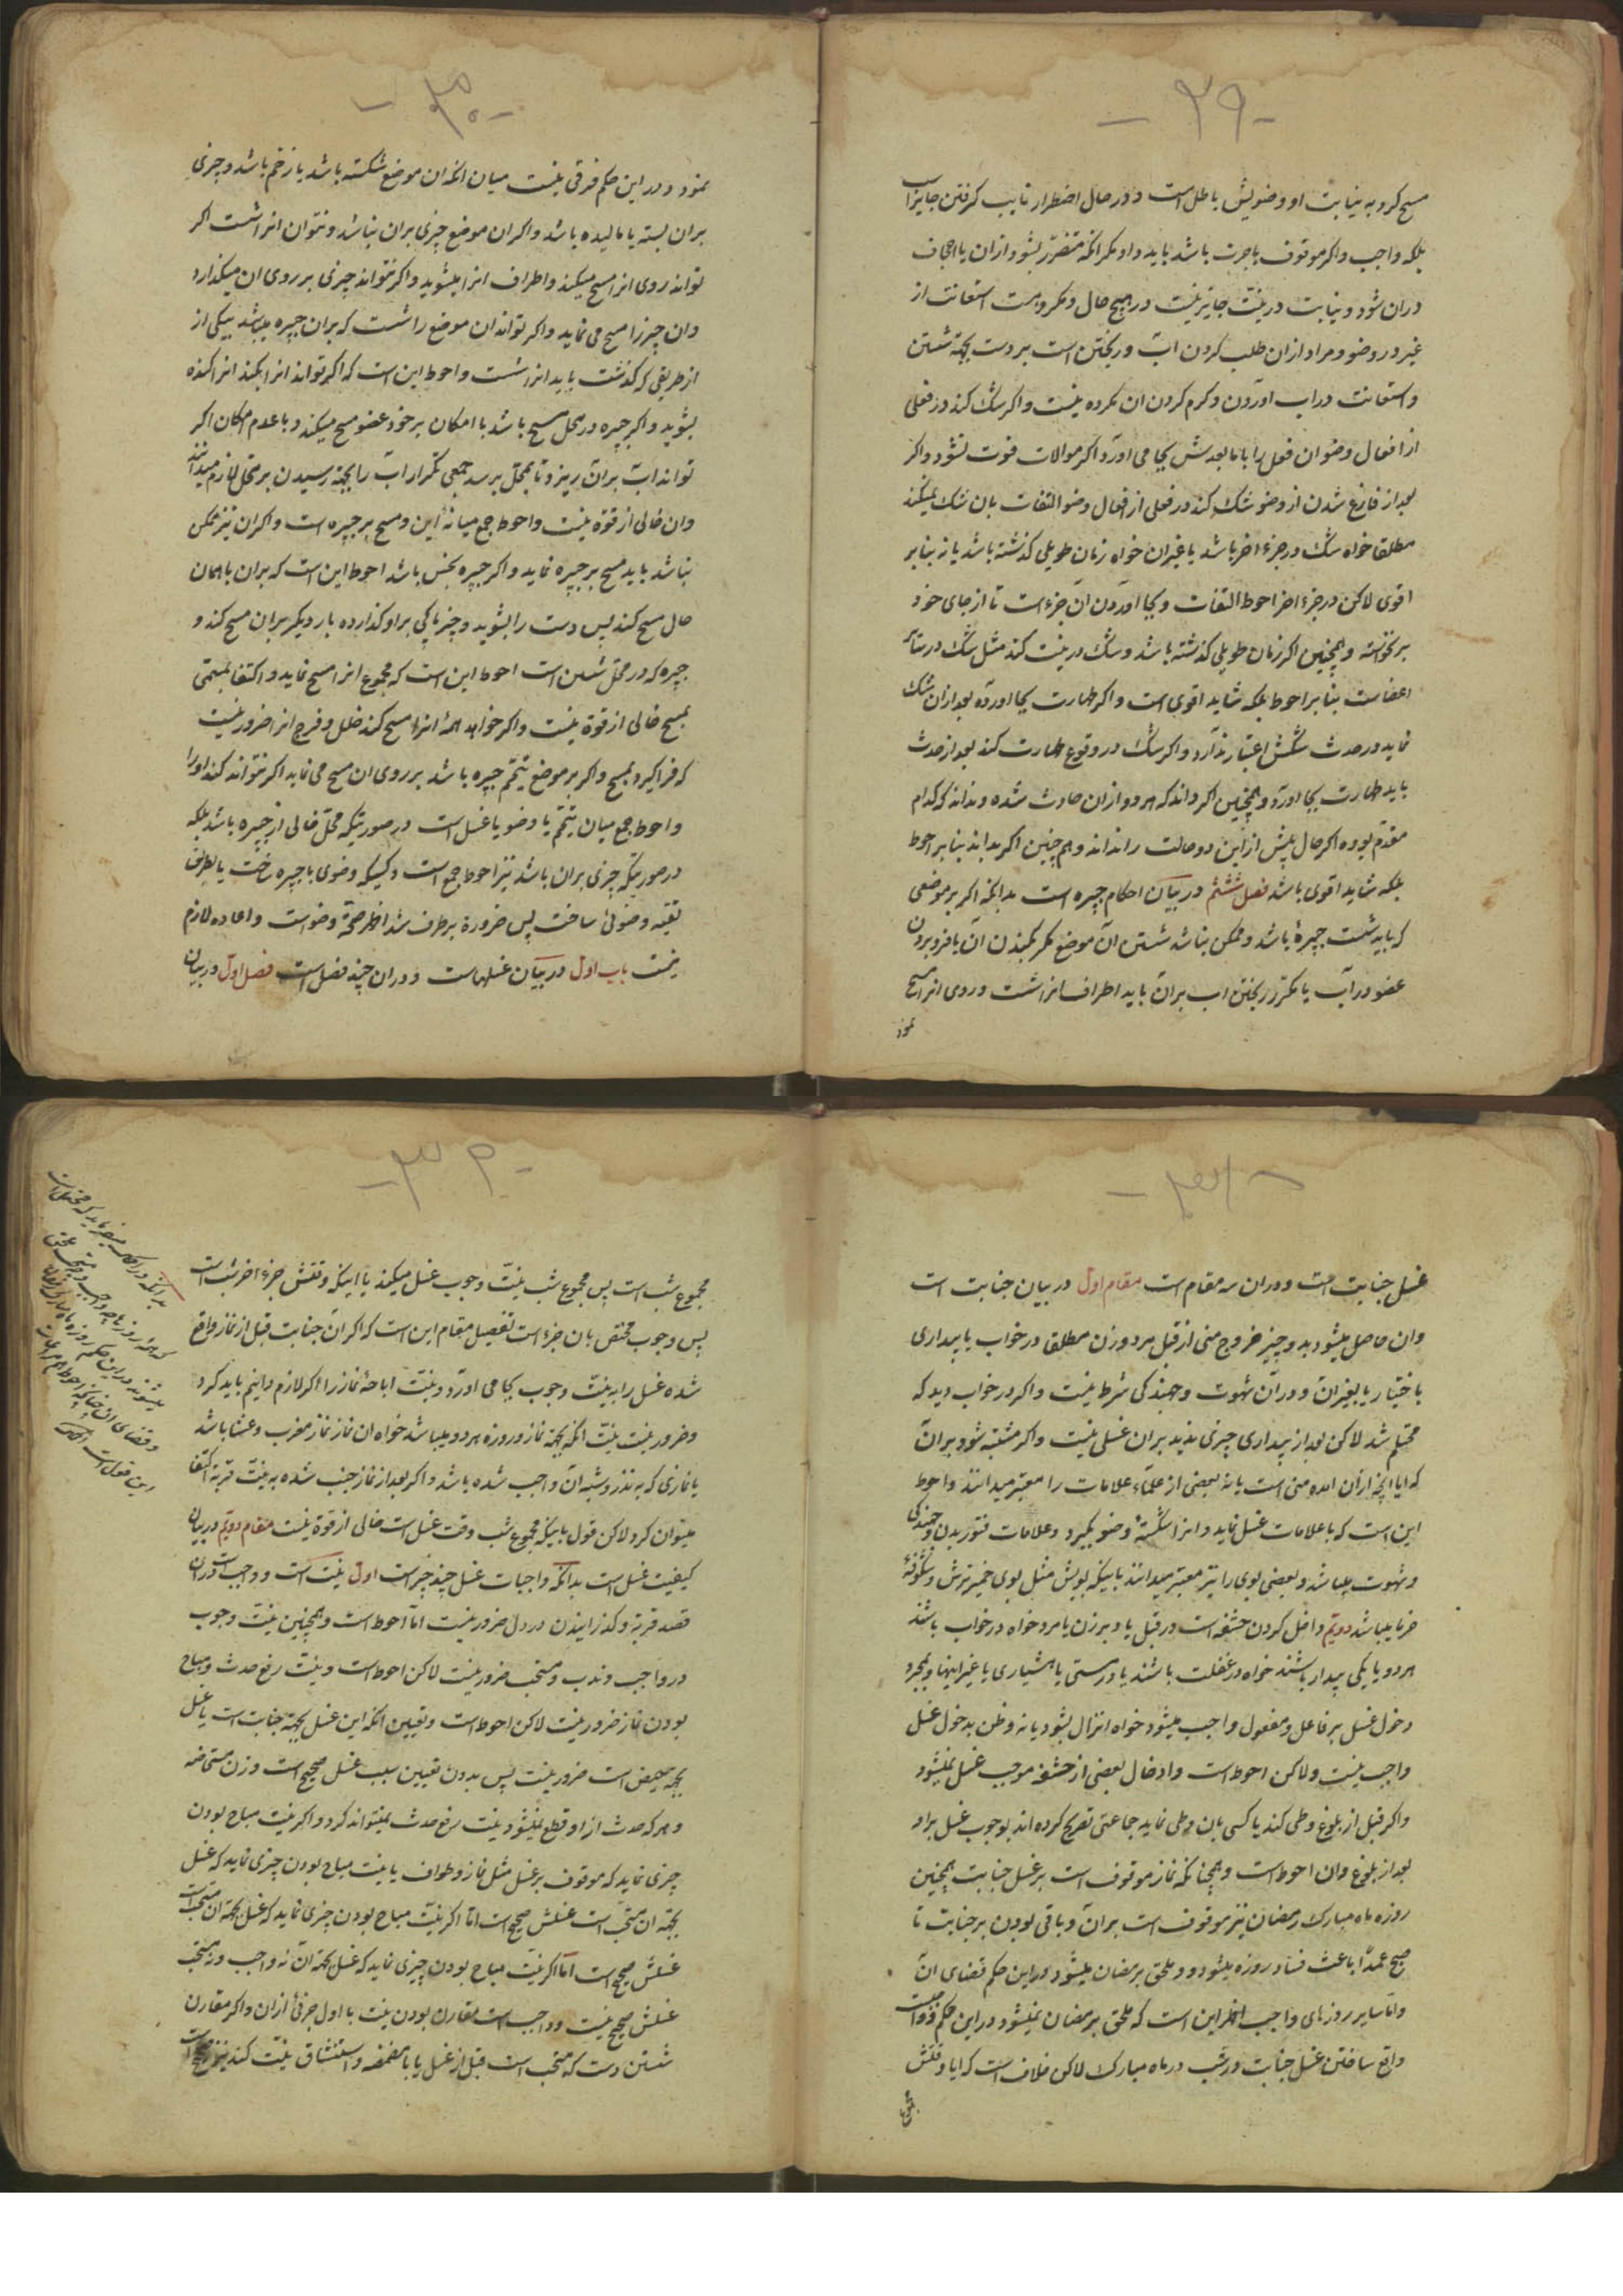 -۲۹-
مسح کرد به نیابت او وضویش باطل است و در حال اضطرار نایب کرفتن جایز است
بلکه واجب و اکر موقوف باجرت باشد باید داد مکر انکه متضرّر بشود از ان یا اجحاف
در ان شود و نیابت در نیّت جایز نیست در هیچ حال و مکروهست استعانت از
غیر در وضو و مراد از ان طلب کردن آب و ریختن است بر دست بجهة شستن
و استعانت در اب اوردن و کرم کردن ان مکروه نیست و اکر شک کند در فعلی
از افعال وضو ان فعل را با ما بعدش بجا می اورد اکر موالات فوت نشود و اکر
بعد از فارغ شدن از وضو شک کند در فعلی از افعال وضو التفات بان شک نمیکند
مطلقا خواه شک در جزء اخر باشد یا غیر ان خواه زمان طویلی کذشته باشد یا نه بنابر
اقوی لاکن در جزء اخر احوط التفات و بجا اوردن آن جزء است تا از جای خود
برنخواسته و همچنین اکر زمان طویلی کذشته باشد و شک در نیت کند مثل شک در سائر
اعضاست بنابر احوط بلکه شاید اقوی است و اکر طهارت بجا اورده بعد از ان شک
نماید در حدث شکش اعتبار ندارد و اکر شک در وقوع طهارت کند بعد از حدث
باید طهارت بجا اورد و همچنین اکر داند که هر دو از ان حادث شده و نداند که کدام
مقدّم بوده اکر حال پیش از این دو حالت را نداند و هم چنین اکر بداند بنابر احوط
بلکه شاید اقوی باشد فصل ششم در بیان احکام جبیره است بدانکه اکر بر موضعی
که باید شست جبیرهٔ باشد و ممکن نباشد شستن آن موضع مکر بکندن آن یا فرو بردن
عضو در آب یا مکرّر ریختن اب بر ان باید اطراف انرا شست و روی انرا مسح
نمود
-۳۰-
نمود و در این حکم فرقی نیست میان انکه ان موضع شکسته باشد یا زخم باشد و چیزی
بر ان بسته یا مالیده باشد و اکر ان موضع چیزی بر ان نباشد و نتوان انرا شست اکر
تواند روی انرا مسح میکند و اطراف انرا میشوید و اکر نتواند چیزی بر روی ان میکذارد
و ان چیز را مسح می نماید و اکر تواند ان موضع را شست که بر ان جبیره میباشد بیکی از
از طریقی که کذشت باید انرا شست و احوط این است که اکر تواند انرا بکند انرا کنده
بشوید و اکر جبیره در محل مسح باشد با امکان بر خود عضو مسح میکند و با عدم امکان اکر
تواند اب بر ان ریزد تا بمحل برسد جمعی تکرار اب را بجهة رسیدن بر محل لازم میدانند
و ان خالی از قوّه نیست و احوط جمع میانه این و مسح بر جبیره است و اکر ان نیز ممکن
نباشد باید مسح بر جبیره نماید و اکر جبیره نجس باشد احوط این است که بر ان با همان
حال مسح کند پس دست را بشوید و چیز پاکی بر او کذارده بار دیکر بر ان مسح کند و
جبیره که در محل شستن است احوط این است که مجموع انرا مسح نماید و اکتفا بمسمّی
مسح خالی از قوة نیست و اکر خواهد همهٔ انرا مسح کند خلل و فرج انرا ضرور نیست
که فرا کیرد بمسح و اکر بر موضع تیمّم جبیره باشد بر روی ان مسح می نماید اکر نتواند کند او را
و احوط جمع میان تیمّم یا وضو یا غسل است در صورتیکه محل خالی از جبیره باشد بلکه
در صورتیکه چیزی بر ان باشد نیز احوط جمع است و کسیکه وضوی با جبیره ساخت یا بطریق
تقیه وضوئی ساخت پس ضرورة برطرف شد اظهر صحّة وضوست و اعاده لازم
نیست باب اوّل در بیان غسلهاست و در ان چند فصل است فصل اوّل در بیان
-۳۱-
غسل جنابت است و در ان سه مقام است مقام اول در بیان جنابت است
و ان حاصل میشود بدو چیز خروج منی از قبل مرد و زن مطلقا در خواب یا بیداری
باختیار یا بغیر ان و در آن شهوت و جهندکی شرط نیست و اکر در خواب دید که
محتلم شد لاکن بعد از بیداری چیزی ندید بر ان غسلی نیست و اکر مشتبه شود بر ان
که ایا انچه از ان امده منی است یا نه بعضی از علماء علامات را معتبر میدانند و احوط
این است که با علامات غسل نماید و انرا شکسته وضو بکیرد و علامات فتور بدن و جهندکی
و شهوت میباشد و بعضی بوی را نیز معتبر میدانند باینکه بویش مثل بوی خمیر ترش و شکوفهٔ
خرما میباشد دویّم داخل کردن حشفه است در قبل یا دبر زن یا مرد خواه در خواب باشند
هر دو یا یکی بیدار باشند خواه در غفلت باشند یا در مستی یا هشیاری یا غیر اینها و بمجرد
دخول غسل بر فاعل و مفعول واجب میشود خواه انزال بشود یا نه و ظن بدخول غسل
واجب نیست و لاکن احوط است و ادخال بعضی از حشفه موجب غسل نمیشود
و اکر قبل از بلوغ وطی کند یا کسی بان وطی نماید جماعتی تصریح کرده اند بوجوب غسل بر او
بعد از بلوغ و ان احوط است و همچنانکه نماز موقوف است بر غسل جنابت همچنین
روزه ماه مبارک رمضان نیز موقوف است بر ان و باقی بودن بر جنابت تا
صبح عمداً باعث فساد روزه میشود و ملحق برمضان میشود در این حکم قضای ان
و امّا سایر روزهای واجب اظهر این است که ملحق برمضان نمیشود در این حکم و واجبست
واقع ساختن غسل جنابت در شب در ماه مبارک لاکن خلاف است که ایا وقتش
مجموع
-۳۲-
مجموع شب است پس مجموع شب نیّت وجوب غسل میکند یا اینکه وقتش جزء اخر شب است
پس وجوب مختص بان جزء است تفصیل مقام این است که اکر ان جنابت قبل از نماز واقع
شده غسل را به نیّت وجوب بجا می اورد و نیّت اباحهٔ نماز را اکر لازم دانیم باید کرد
و ضرور نیست نیّت انکه بجهة نماز و روزه هر دو میباشد خواه ان نماز نماز مغرب و عشا باشد
یا نمازی که به نذر و شبه آن واجب شده باشد و اکر بعد از نماز جنب شده به نیّت قربة اکتفا
میتوان کرد لاکن قول باینکه مجموع شب وقت غسل است خالی از قوة نیست مقام دویّم در بیان
کیفیت غسل است بدانکه واجبات غسل چند چیز است اول نیّت است و واجب است در ان
قصد قربة و کذرانیدن در دل ضرور نیست امّا احوط است و همچنین نیّت وجوب
در واجب و ندب و مستحب ضرور نیست لاکن احوط است و نیّت رفع حدث و مباح
بودن نماز ضرور نیست لاکن احوط است و تعیین انکه این غسل بجهة جنابت است یا غسل
بجهة حیض است ضرور نیست پس بدون تعیین سبب غسل صحیح است و زن مستحاضه
و هر که حدث از او قطع نمیشود نیت رفع حدث نمیتواند کرد و اکر نیّت مباح بودن
چیزی نماید که موقوف بر غسل مثل نماز و طواف یا نیت مباح بودن چیزی نماید که غسل
بجهة ان مستحب است غسلش صحیح است امّا اکر نیّت مباح بودن چیزی نماید که غسل بجهة ان مستحب است
غسلش صحیح است امّا اکر نیّت مباح بودن چیزی نماید که غسل بجهة آن نه واجب و نه مستحب
غسلش صحیح نیست و واجب است مقارن بودن نیت با اول جزئی از ان و اکر مقارن
شستن دست که مستحب است قبل از غسل یا با مضمضه و استنشاق نیّت کند نیز صحیح است
بدانکه در
که هر روزه چه واجب و چه
میشوند در این حکم روزه ماه مبارک رمضان
و قضای ان چنانچه احوط
این قول است